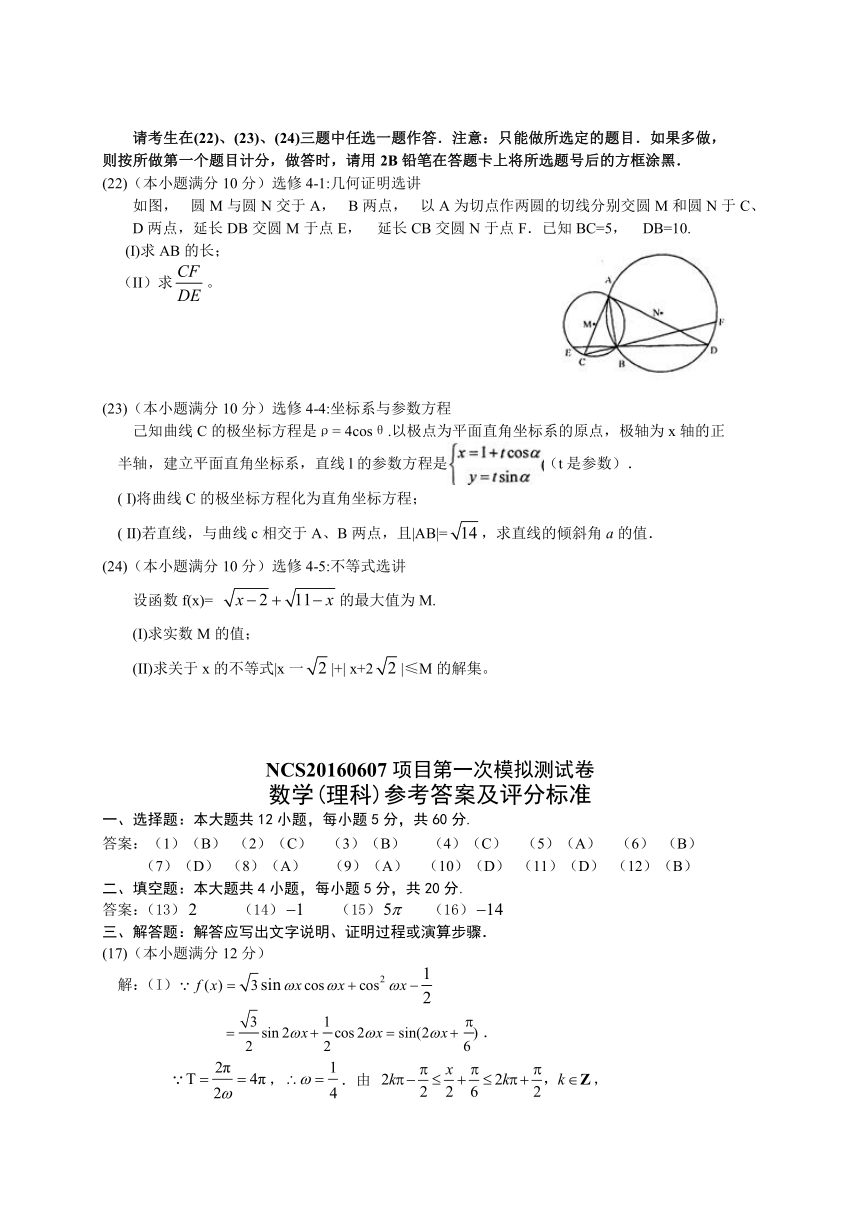 请考生在(22)、(23)、(24)三题中任选一题作答．注意：只能做所选定的题目．如果多做，
则按所做第一个题目计分，做答时，请用 2B 铅笔在答题卡上将所选题号后的方框涂黑．
(22)（本小题满分 10 分）选修 4-1:几何证明选讲
如图， 圆 M 与圆 N 交于 A， B 两点， 以 A 为切点作两圆的切线分别交圆 M 和圆 N 于 C、
D 两点，延长 DB 交圆 M 于点 E， 延长 CB 交圆 N 于点 F．已知 BC=5， DB=10.
(I)求 AB 的长；
（II）求 CF/DE 。
A
N
M
F
E
D
C
B
(23)（本小题满分 10 分）选修 4-4:坐标系与参数方程
己知曲线 C 的极坐标方程是 ρ = 4cos θ .以极点为平面直角坐标系的原点，极轴为 x 轴的正
半轴，建立平面直角坐标系，直线 l 的参数方程是 { x=1+tcosα y=tsinα （t 是参数）．
( I)将曲线 C 的极坐标方程化为直角坐标方程；
( II)若直线，与曲线 c 相交于 A、B 两点，且|AB|= √14 ，求直线的倾斜角 a 的值．
(24)（本小题满分 10 分）选修 4-5:不等式选讲
设函数 f(x)= √x−2 + √11−x 的最大值为 M.
(I)求实数 M 的值；
(II)求关于 x 的不等式|x 一 √2 |+| x+2 √2 |≤M 的解集。
NCS20160607 项目第一次模拟测试卷
数学(理科)参考答案及评分标准
一、选择题：本大题共 12 小题，每小题 5 分，共 60 分.
答案：（1）（B） （2）（C） （3）（B） （4）（C） （5）（A） （6） （B）
（7）（D） （8）（A） （9）（A） （10）（D） （11）（D） （12）（B）
二、填空题：本大题共 4 小题，每小题 5 分，共 20 分.
答案：（13）2 （14）−1 （15）5π （16）−14
三、解答题：解答应写出文字说明、证明过程或演算步骤．
(17)（本小题满分 12 分）
解：（I）∵ f(x) = √3 sin ωx cos ωx + cos² ωx − 1/2
= √3/2 sin 2ωx + 1/2 cos 2ωx = sin(2ωx + π/6) ．
∵ T = 2π/2ω = 4π ，∴ ω = 1/4 ．由 2kπ − π/2 ≤ x/2 + π/6 ≤ 2kπ + π/2，k ∈ Z ，